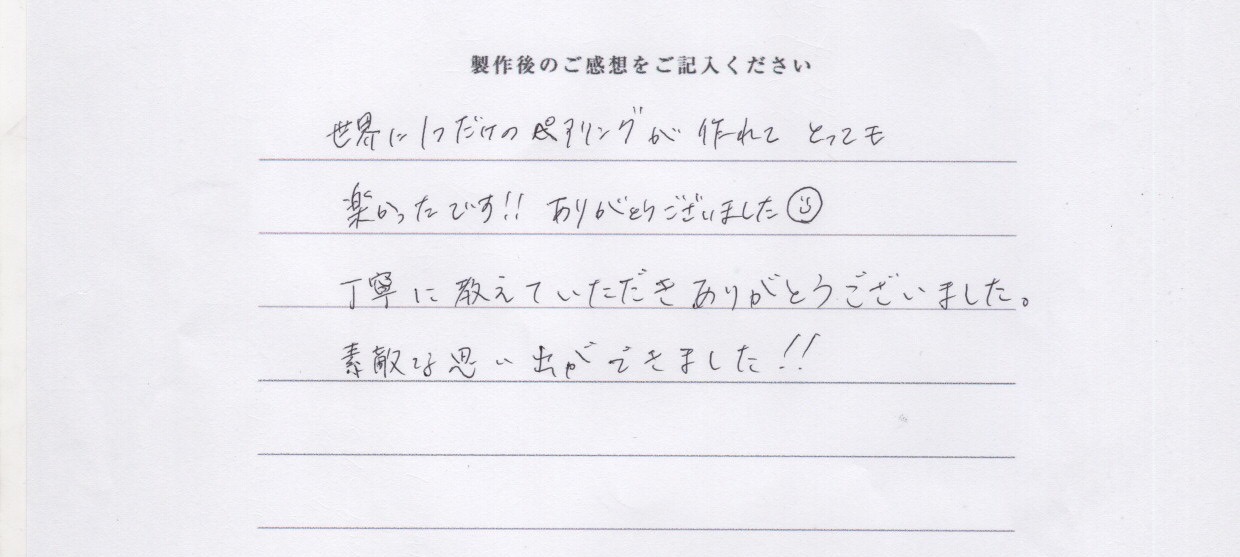 製作後のご感想をご記入ください
世界に1つだけのペアリングが作れてとっても
楽かったです!! ありがとうございました☺
丁寧に教えていただきありがとうございました。
素敵な思い出ができました!!